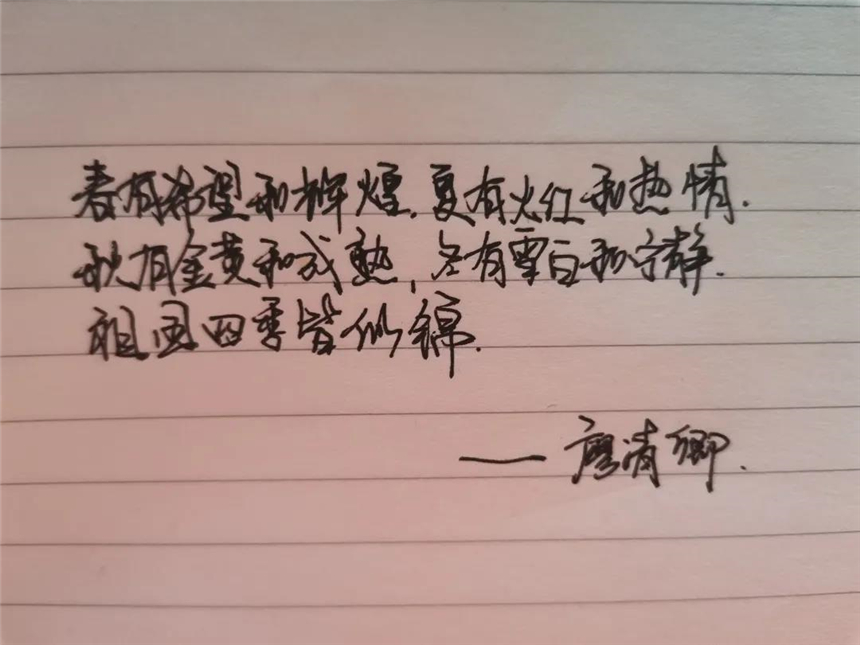 春有希望和辉煌.夏有火红和热情.
秋有金黄和成熟,冬有雪白和宁静.
祖国四季皆似锦.
——廖清卿.